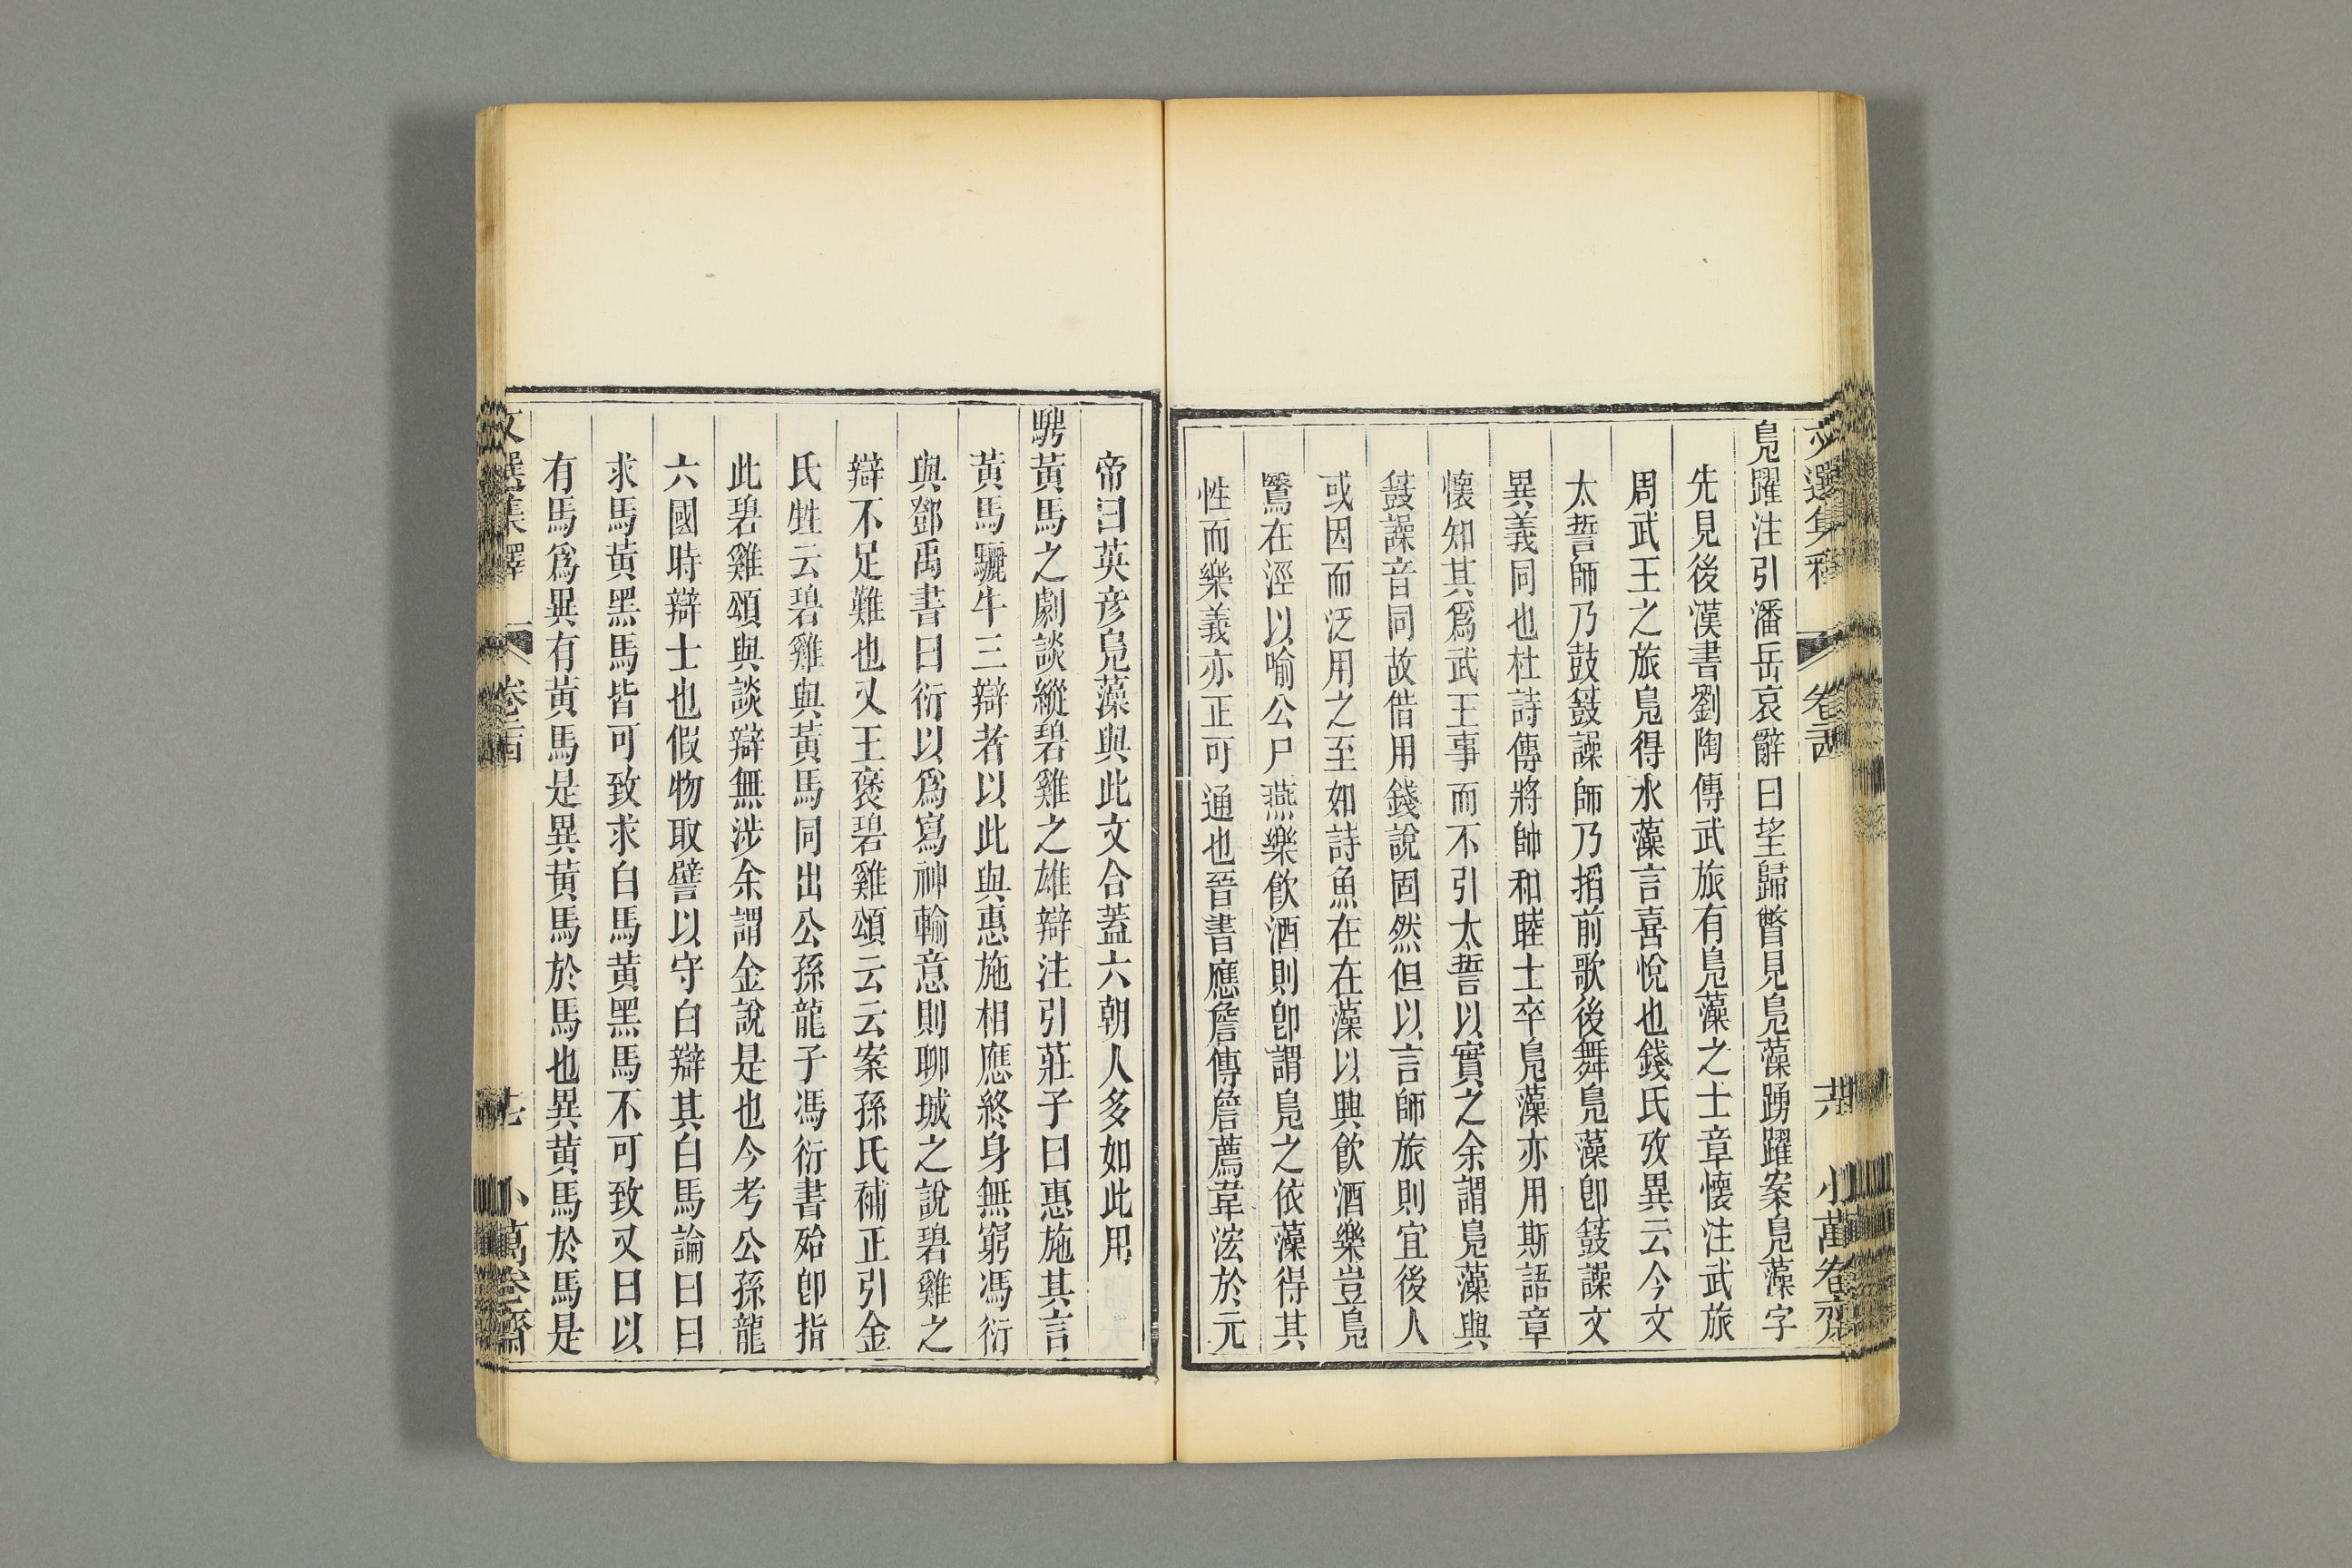 文選集釋 卷二十四 十六 小萬卷齋
鳧躍注引潘岳哀辭曰望歸瞥見鳧藻踴躍案鳧藻字
先見後漢書劉陶傳武旅有鳧藻之士章懷注武旅
周武王之旅鳧得水藻言喜悅也錢氏攷異云今文
太誓師乃鼓鼜譟師乃搯前歌後舞鳧藻卽鼜譟文
異義同也杜詩傳將帥和睦士卒鳧藻亦用斯語章
懷知其爲武王事而不引太誓以實之余謂鳧藻與
鼜譟音同故借用錢說固然但以言師旅則宜後人
或因而泛用之至如詩魚在在藻以興飮酒樂豈鳧
鷖在涇以喻公尸燕樂飮酒則卽謂鳧之依藻得其
性而樂義亦正可通也晉書應詹傳詹薦韋泓於元
帝曰英彦鳧藻與此文合蓋六朝人多如此用
騁黃馬之劇談縱碧雞之雄辯注引莊子曰惠施其言
黃馬驪牛三辯者以此與惠施相應終身無窮馮衍
與鄧禹書曰衍以爲寫神輸意則聊城之說碧雞之
辯不足難也又王褒碧雞頌云云案孫氏補正引金
氏甡云碧雞與黃馬同出公孫龍子馮衍書殆卽指
此碧雞頌與談辯無涉余謂金說是也今考公孫龍
六國時辯士也假物取譬以守白辯其白馬論曰曰
求馬黃黑馬皆可致求白馬黃黑馬不可致又曰以
有馬爲異有黃馬是異黃馬於馬也異黃馬於馬是
文選集釋 卷二十四 十七 小萬卷齋